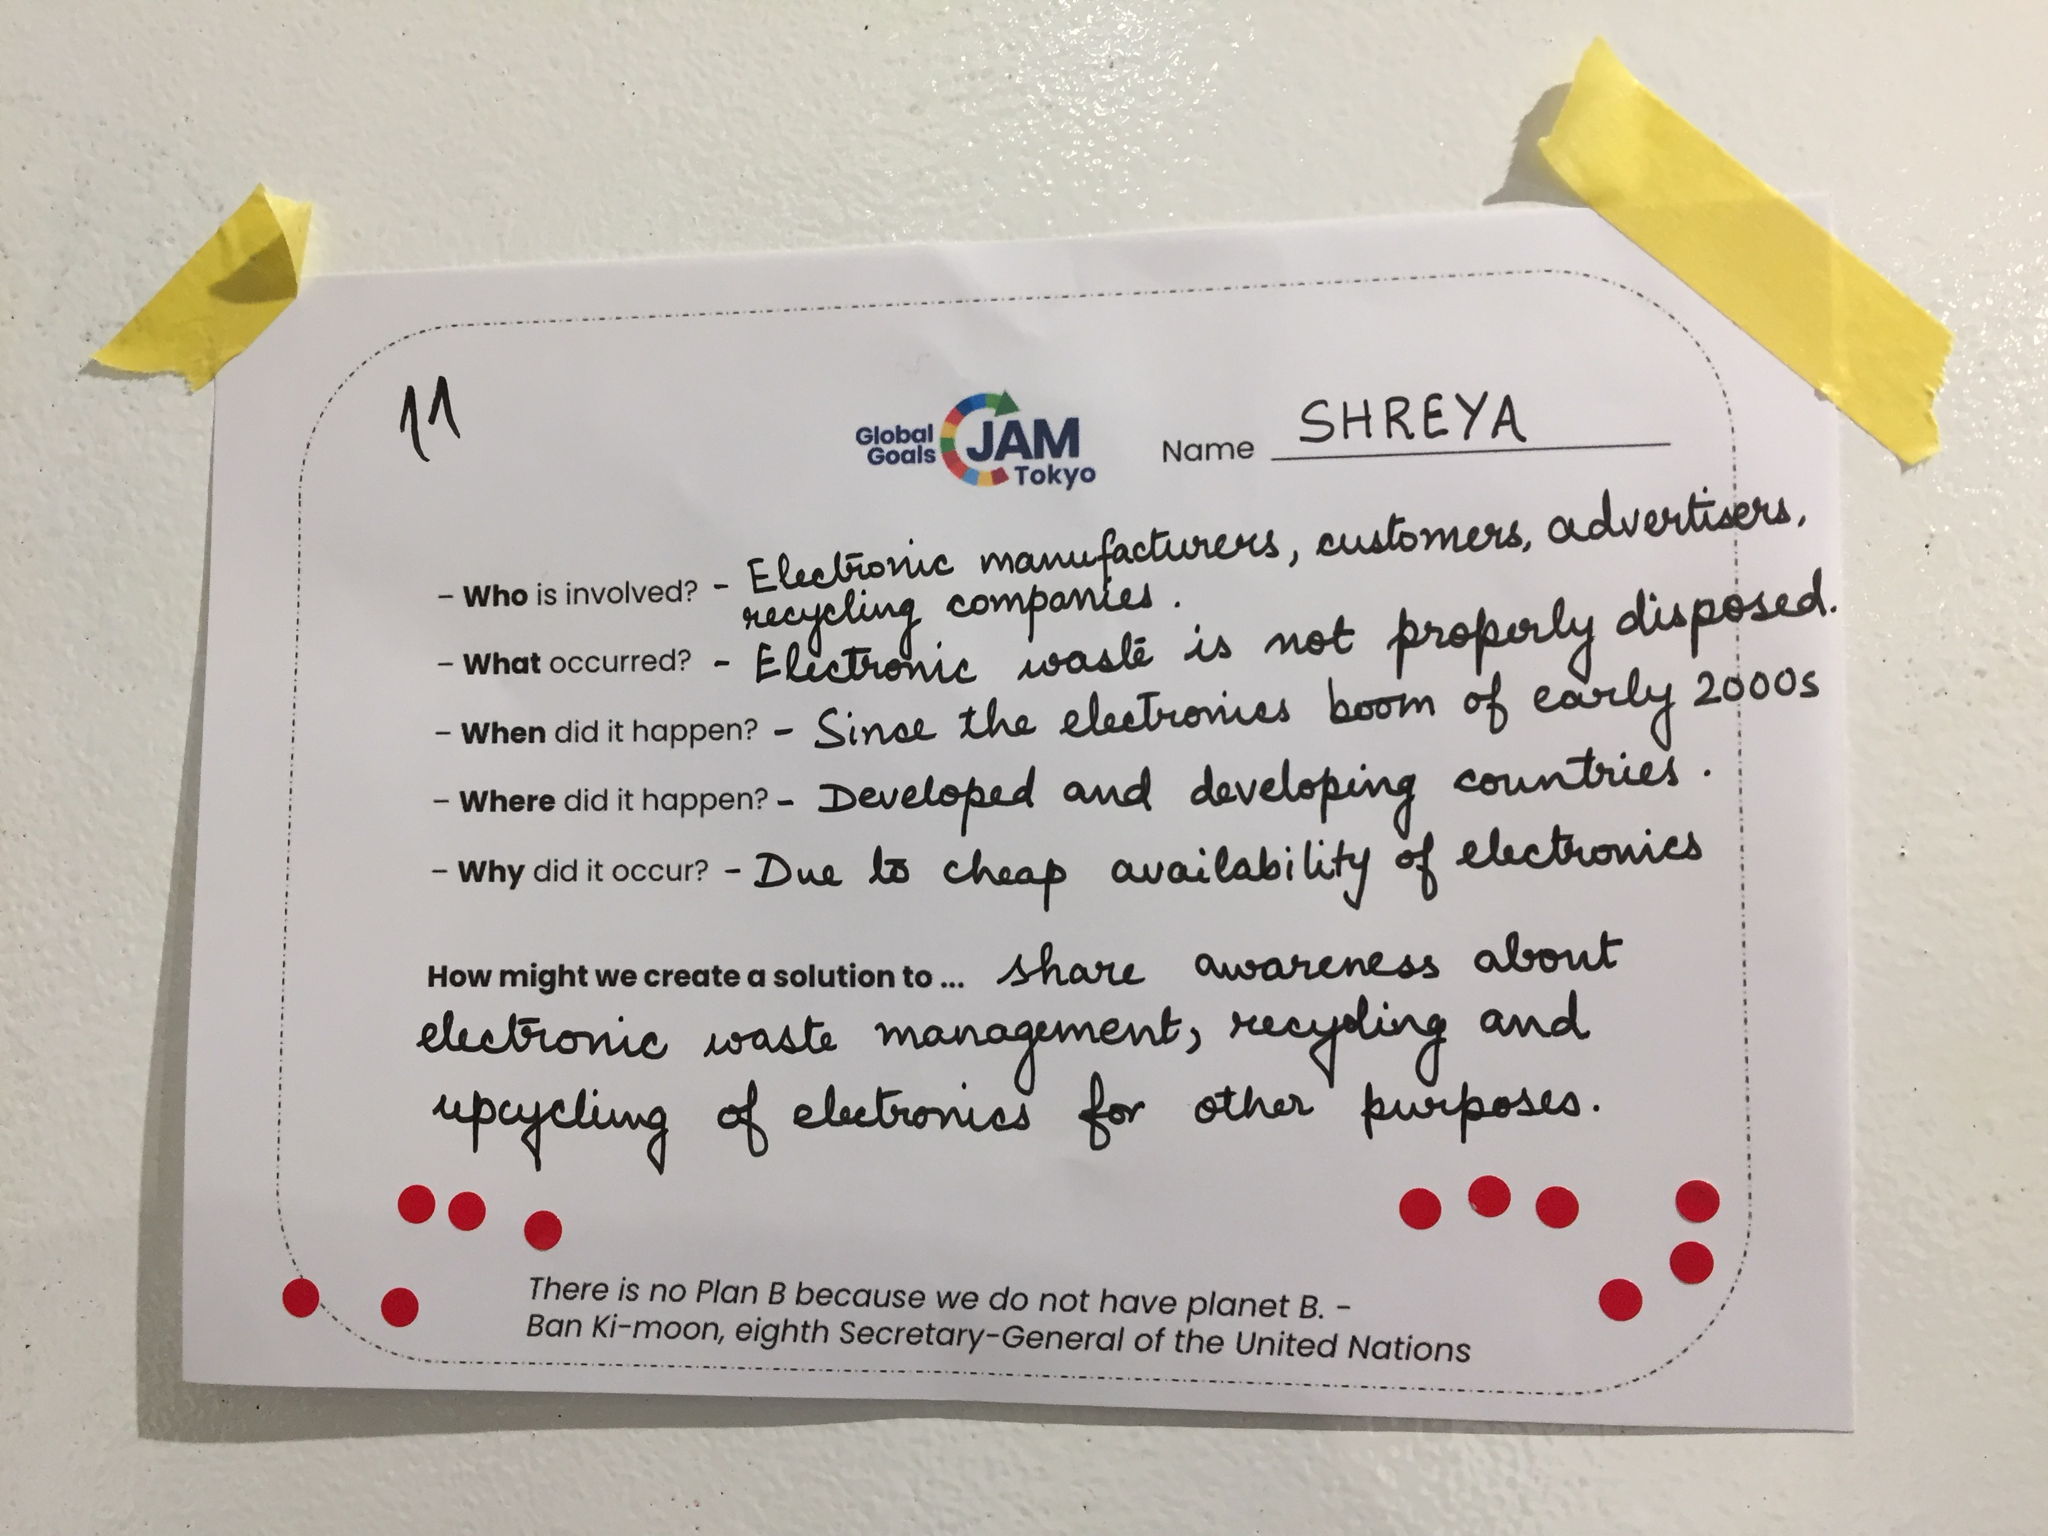 11
Global
Goals
JAM
Tokyo
Name SHREYA
– Who is involved? - Electronic manufacturers, customers, advertisers,
recycling companies.
– What occurred? - Electronic waste is not properly disposed.
– When did it happen? - Since the electronics boom of early 2000s
– Where did it happen? - Developed and developing countries.
– Why did it occur? - Due to cheap availability of electronics
How might we create a solution to ... share awareness about
electronic waste management, recycling and
upcycling of electronics for other purposes.
There is no Plan B because we do not have planet B. –
Ban Ki-moon, eighth Secretary-General of the United Nations